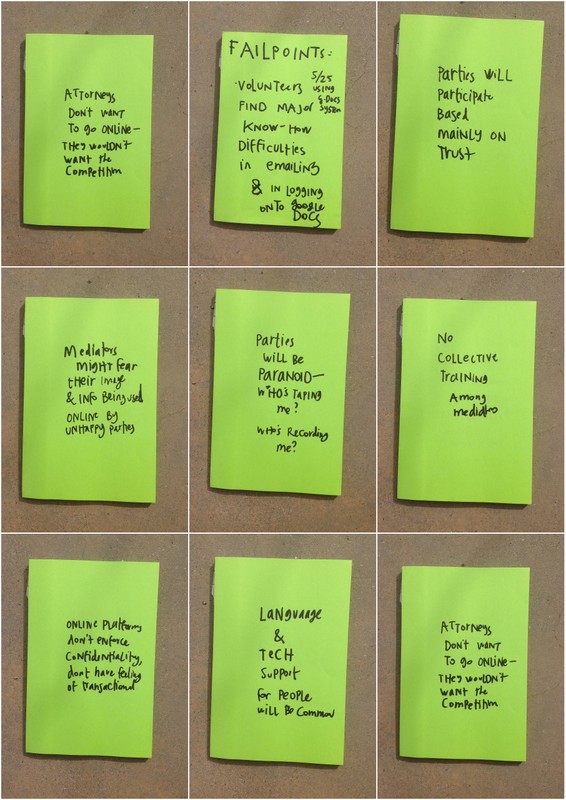 ATTORNEYS
DON'T WANT
To go ONLINE—
THEY WOULDN'T
WANT the
Competition
FAILPOINTS:
·VOLUNTEERS
5/25
USING
G-DOCS
SYSTEM
FIND MAJOR
KNOW-HOW
Difficulties
in EMAILING
& IN LOGGING
ONTO google
DOCS
Parties WILL
Participate
Based
MAINLY ON
TRUST
Mediators
MIGHT FEAR
their image
& INFO Being used
ONLINE By
UNHAPPY parties
Parties
WILL BE
PARANOID—
WHO'S TAPING
me?
WHO'S RECORDING
me?
NO
COLLECTIVE
TRAINING
Among
mediators
ONLINE Platforms
don't enforce
Confidentiality,
dont have feeling
of transactional
LANGUAGE
&
TECH
SUPPORT
for PEOPLE
WILL BE COMMON
ATTORNEYS
DON'T WANT
To go ONLINE—
THEY WOULDN'T
WANT the
Competition